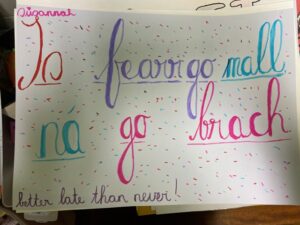 Suzannah
Is fearr go mall
ná go brach
better late than never!